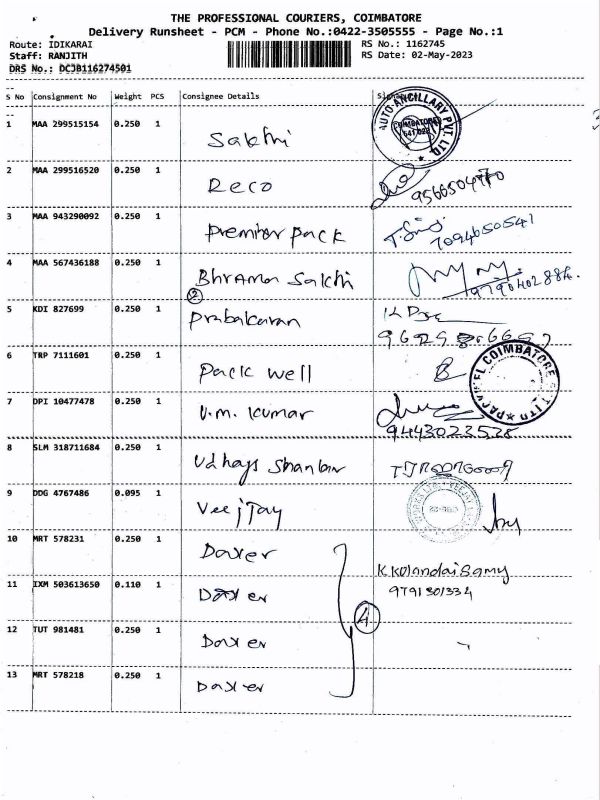 THE PROFESSIONAL COURIERS, COIMBATORE
Delivery Runsheet - PCM - Phone No.:0422-3505555 - Page No.:1
Route: IDIKARAI RS No.: 1162745
Staff: RANJITH RS Date: 02-May-2023
DRS No.: DCJB116274501
S No Consignment No Weight PCS Consignee Details
1 MAA 299515154 0.250 1 Sakthi
AUTO ANCILLARY PVT. LTD.
COIMBATORE
641 028
2 MAA 299516520 0.250 1 Reco
3 MAA 943290092 0.250 1 Premier pack
7094650541
4 MAA 567436188 0.250 1 Bhrama Sakthi
9790402884.
2
5 KDI 827699 0.250 1 Prabakaran
6 TRP 7111601 0.250 1 Pack well
COIMBATORE
7 DPI 10477478 0.250 1 V.m. Kumar
9443023528
8 SLM 318711684 0.250 1 Udhaya Shankar
9 DDG 4767486 0.095 1 Veejay
10 MRT 578231 0.250 1 Daxer
K Kolandaisamy
11 IXM 503613650 0.110 1 Daxer
9791301334
4
12 TUT 981481 0.250 1 Daxer
13 MRT 578218 0.250 1 Daxer